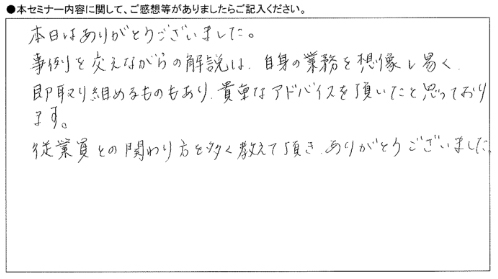 ●本セミナー内容に関して、ご感想等がありましたらご記入ください。
本日はありがとうございました。
事例を交えながらの解説は、自身の業務を想像し易く、
即取り組めるものもあり、貴重なアドバイスを頂いたと思っており
ます。
従業員との関わり方を多く教えて頂き、ありがとうございました。